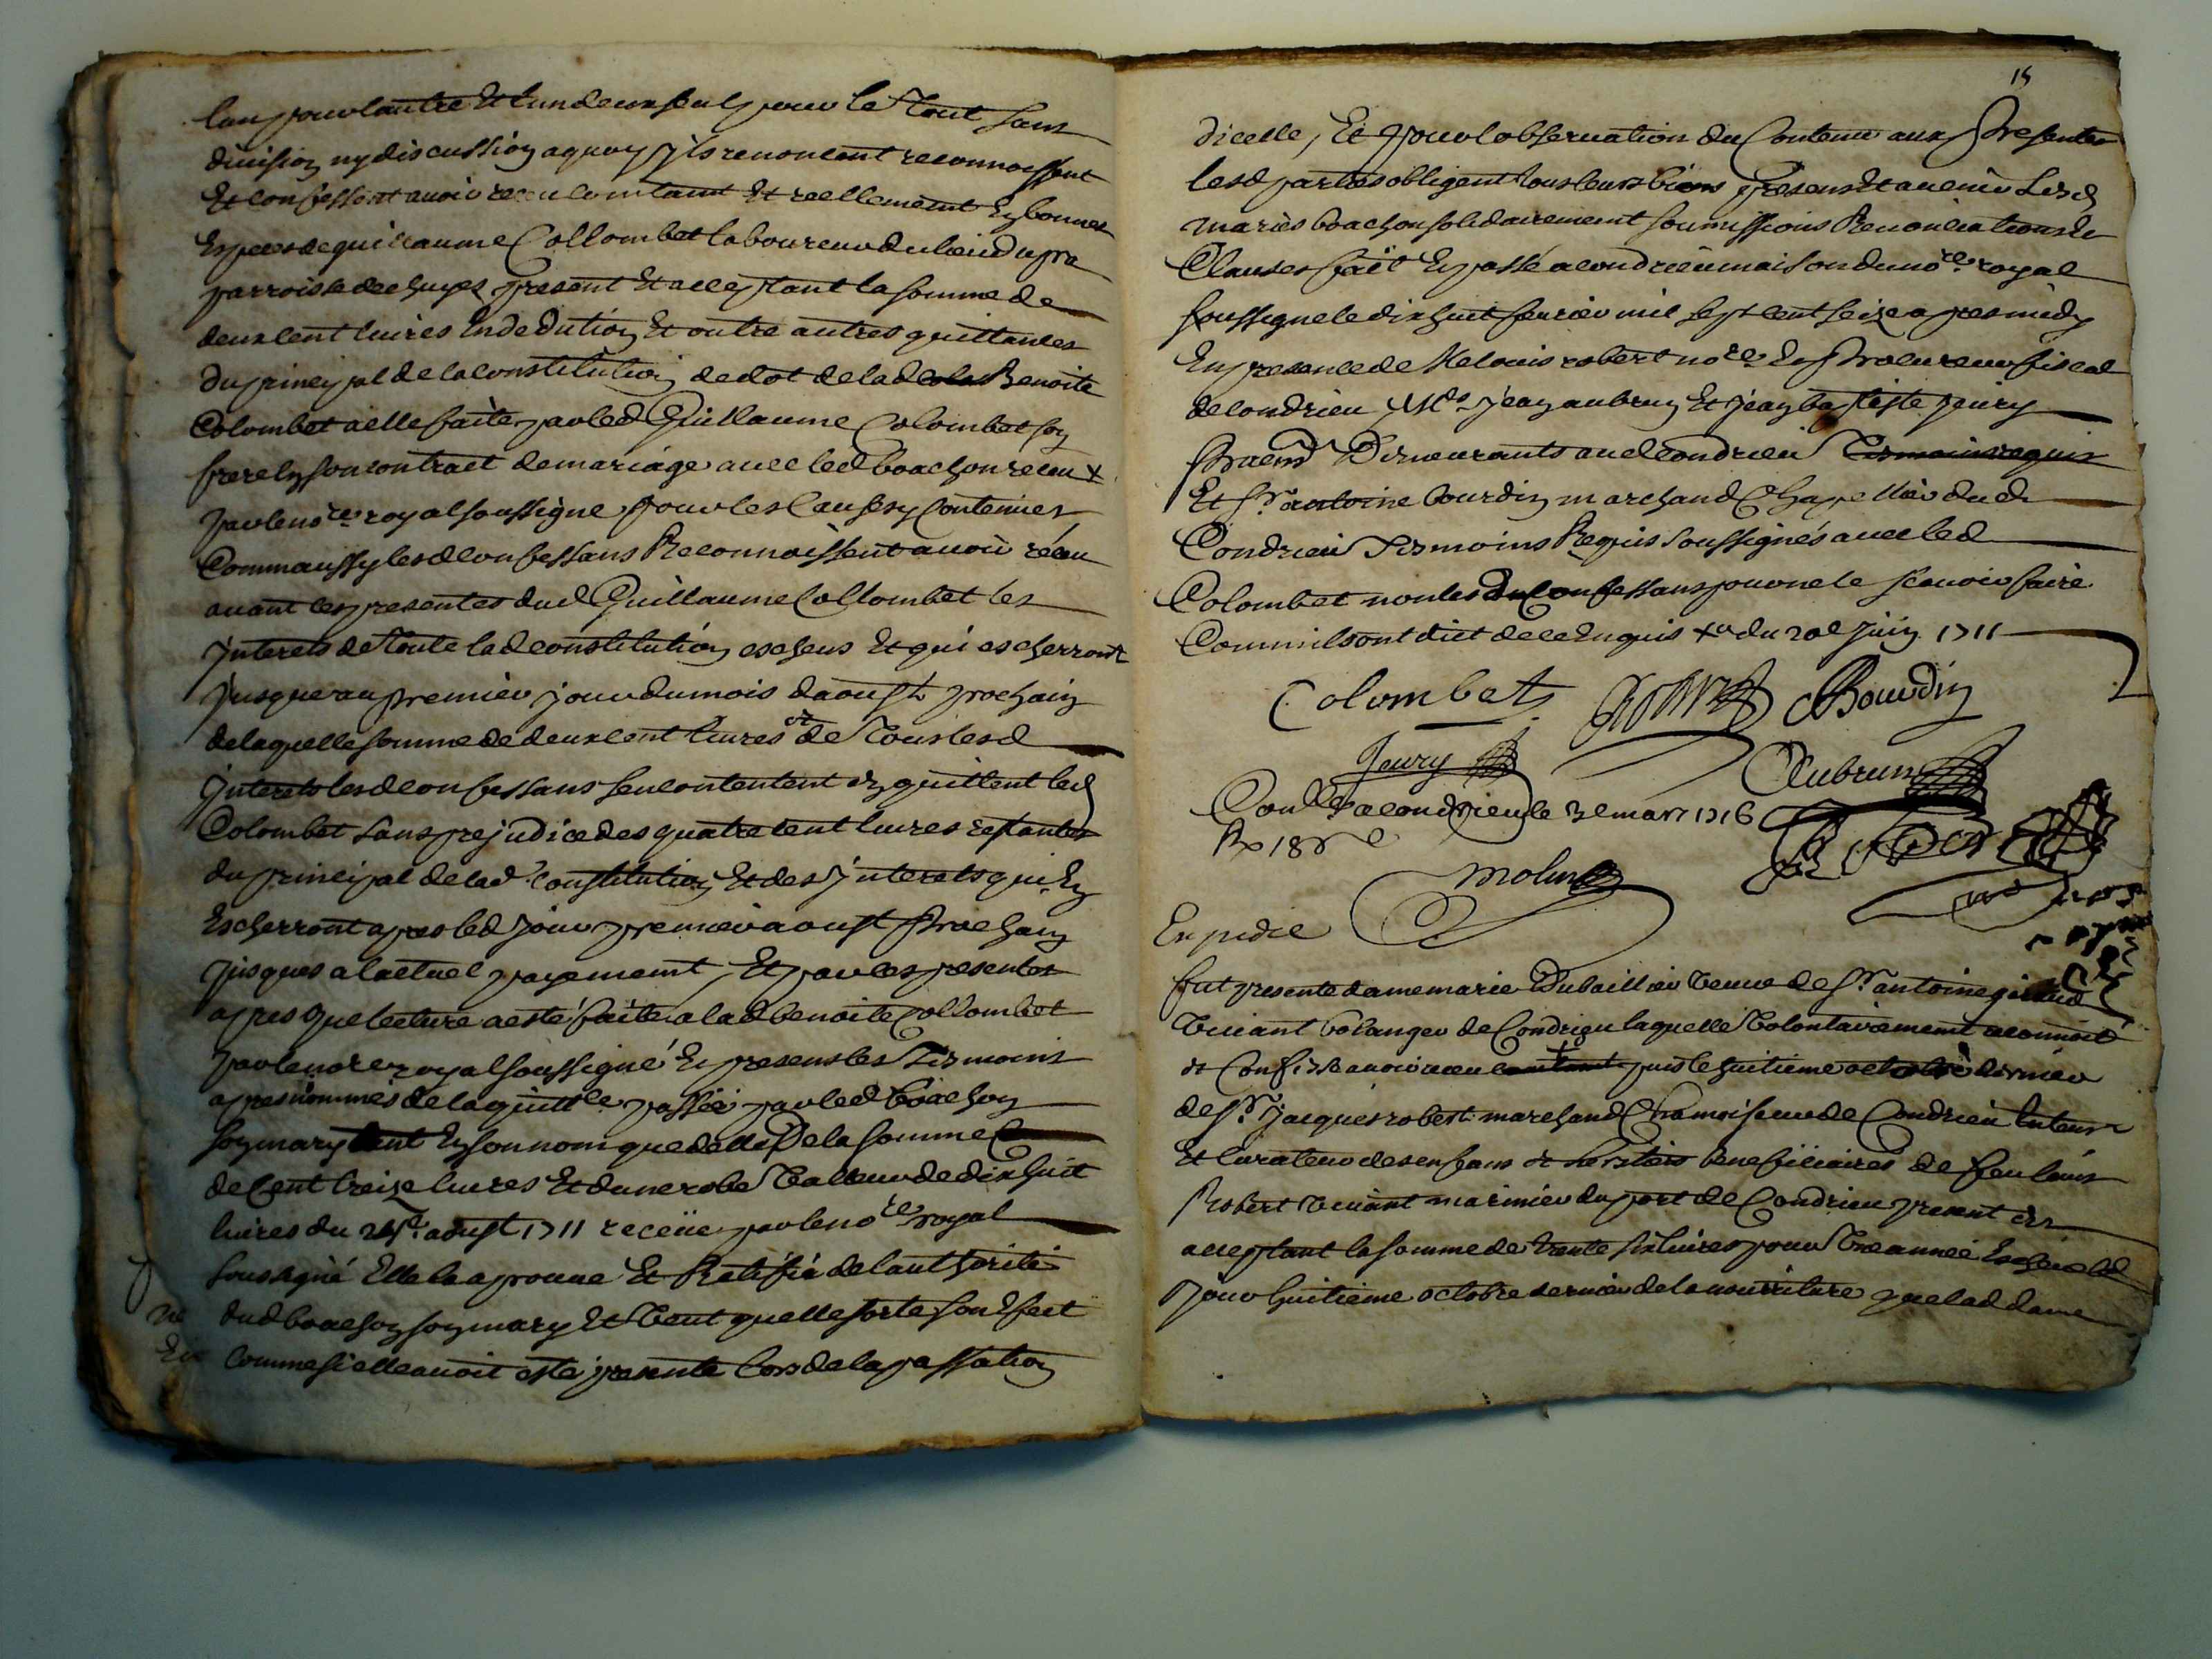 lun pour lautre Et lun deux seul pour le Tout sans
division ny discussion a quoy jls renoncent reconnoissent
Et confessent avoir receu comtant Et reellement En bonnes
Especes de guillaume Collombet laboureur du lieu du pra
parroisse de chuyes present Et acceptant la somme de
deux cent livres En dedution Et outre autres quittances
du principal de la constitution de dot de lad Benoite
Colombet a elle faite par led Guillaume Colombet son
frere En son contract de mariage avec led boachon receu x
par le nore royal soussigne pour les Causes y Contenues
Comm aussy lesd confessans Reconnoissent avoir réceu
avant les presentes dud Guillaume Collombet les
jnterets de Toute lad constitution escheus Et qui escherront
jusques au premier jour du mois daoust prochain
de laquelle somme de deux cent livres et de Tous lesd
jnterets lesd confessans sen contentent En quittent led
Colombet sans prejudice des quatre cent livres restantes
du principal de lad constitution Et des jnterets qui En
Escherront apres led jour premier aoust prochain
jusques a lactuel payement, Et par les presentes
apres que lecture a esté faite a lad benoite Collombet
par le nore royal soussigné En presens les Tesmoins
apres nommés de la quittce passée par led boachon
son mary tant En son nom que delle De la somme
de Cent treize livres Et dune robe Valleur de dix huit
livres du aoust 1711 receüe par le nore royal
soussigné Elle la aprouve Et Ratifie de lauthorité
dud boachon son mary Et Veut quelle sorte son Efect
Comme si elle avoit esté presente lors de la passation
15
dicelle, Et pour lobservation du Contenu aux presentes
lesd parties obligent tous leurs biens presens Et avenir Lesd
mariés boachon solidairement soumissions Renonciations Et
Clauses fait Et passé a condrieu maison du nore royal
soussigne le dix huit fevrier mil sept cent seize apres midy
En presence de Me louis robert nore Et procureur fiscal
de condrieu Mes jean aubrun Et jean baptiste jeury
Demeurants aud condrieu Tesmoins requis
Et Sr antoine bourdin marchand Chapellier dud
Condrieu Tesmoins Requis soussignés avec led
Colombet non lesd Confessans pour ne le scavoir faire
Comm ils ont dict de ce Enquis x du 20e juin 1711
Colombet Robert Bourdin
Jeury Aubrun
Conllé a condrieu le 3e mars 1716
Rx 18s
molin
Expedié
fut presente dame marie Dubaillier veuve de Sr antoine
Vivant bolanger de Condrieu laquelle Volontairement a connoit
et Confesse avoir receu comtant puis le huitieme octobre dernier
de Sr Jacques robert marchand Chamoiseur de Condrieu tuteur
Et Curateur des enfans et heritiers beneficiaires de feu louis
Robert Vivant marinier du port de Condrieu present Et
acceptant la somme de trente six livres pour Une année Escheue led
jour huitieme octobre dernier de la nourriture que lad dame